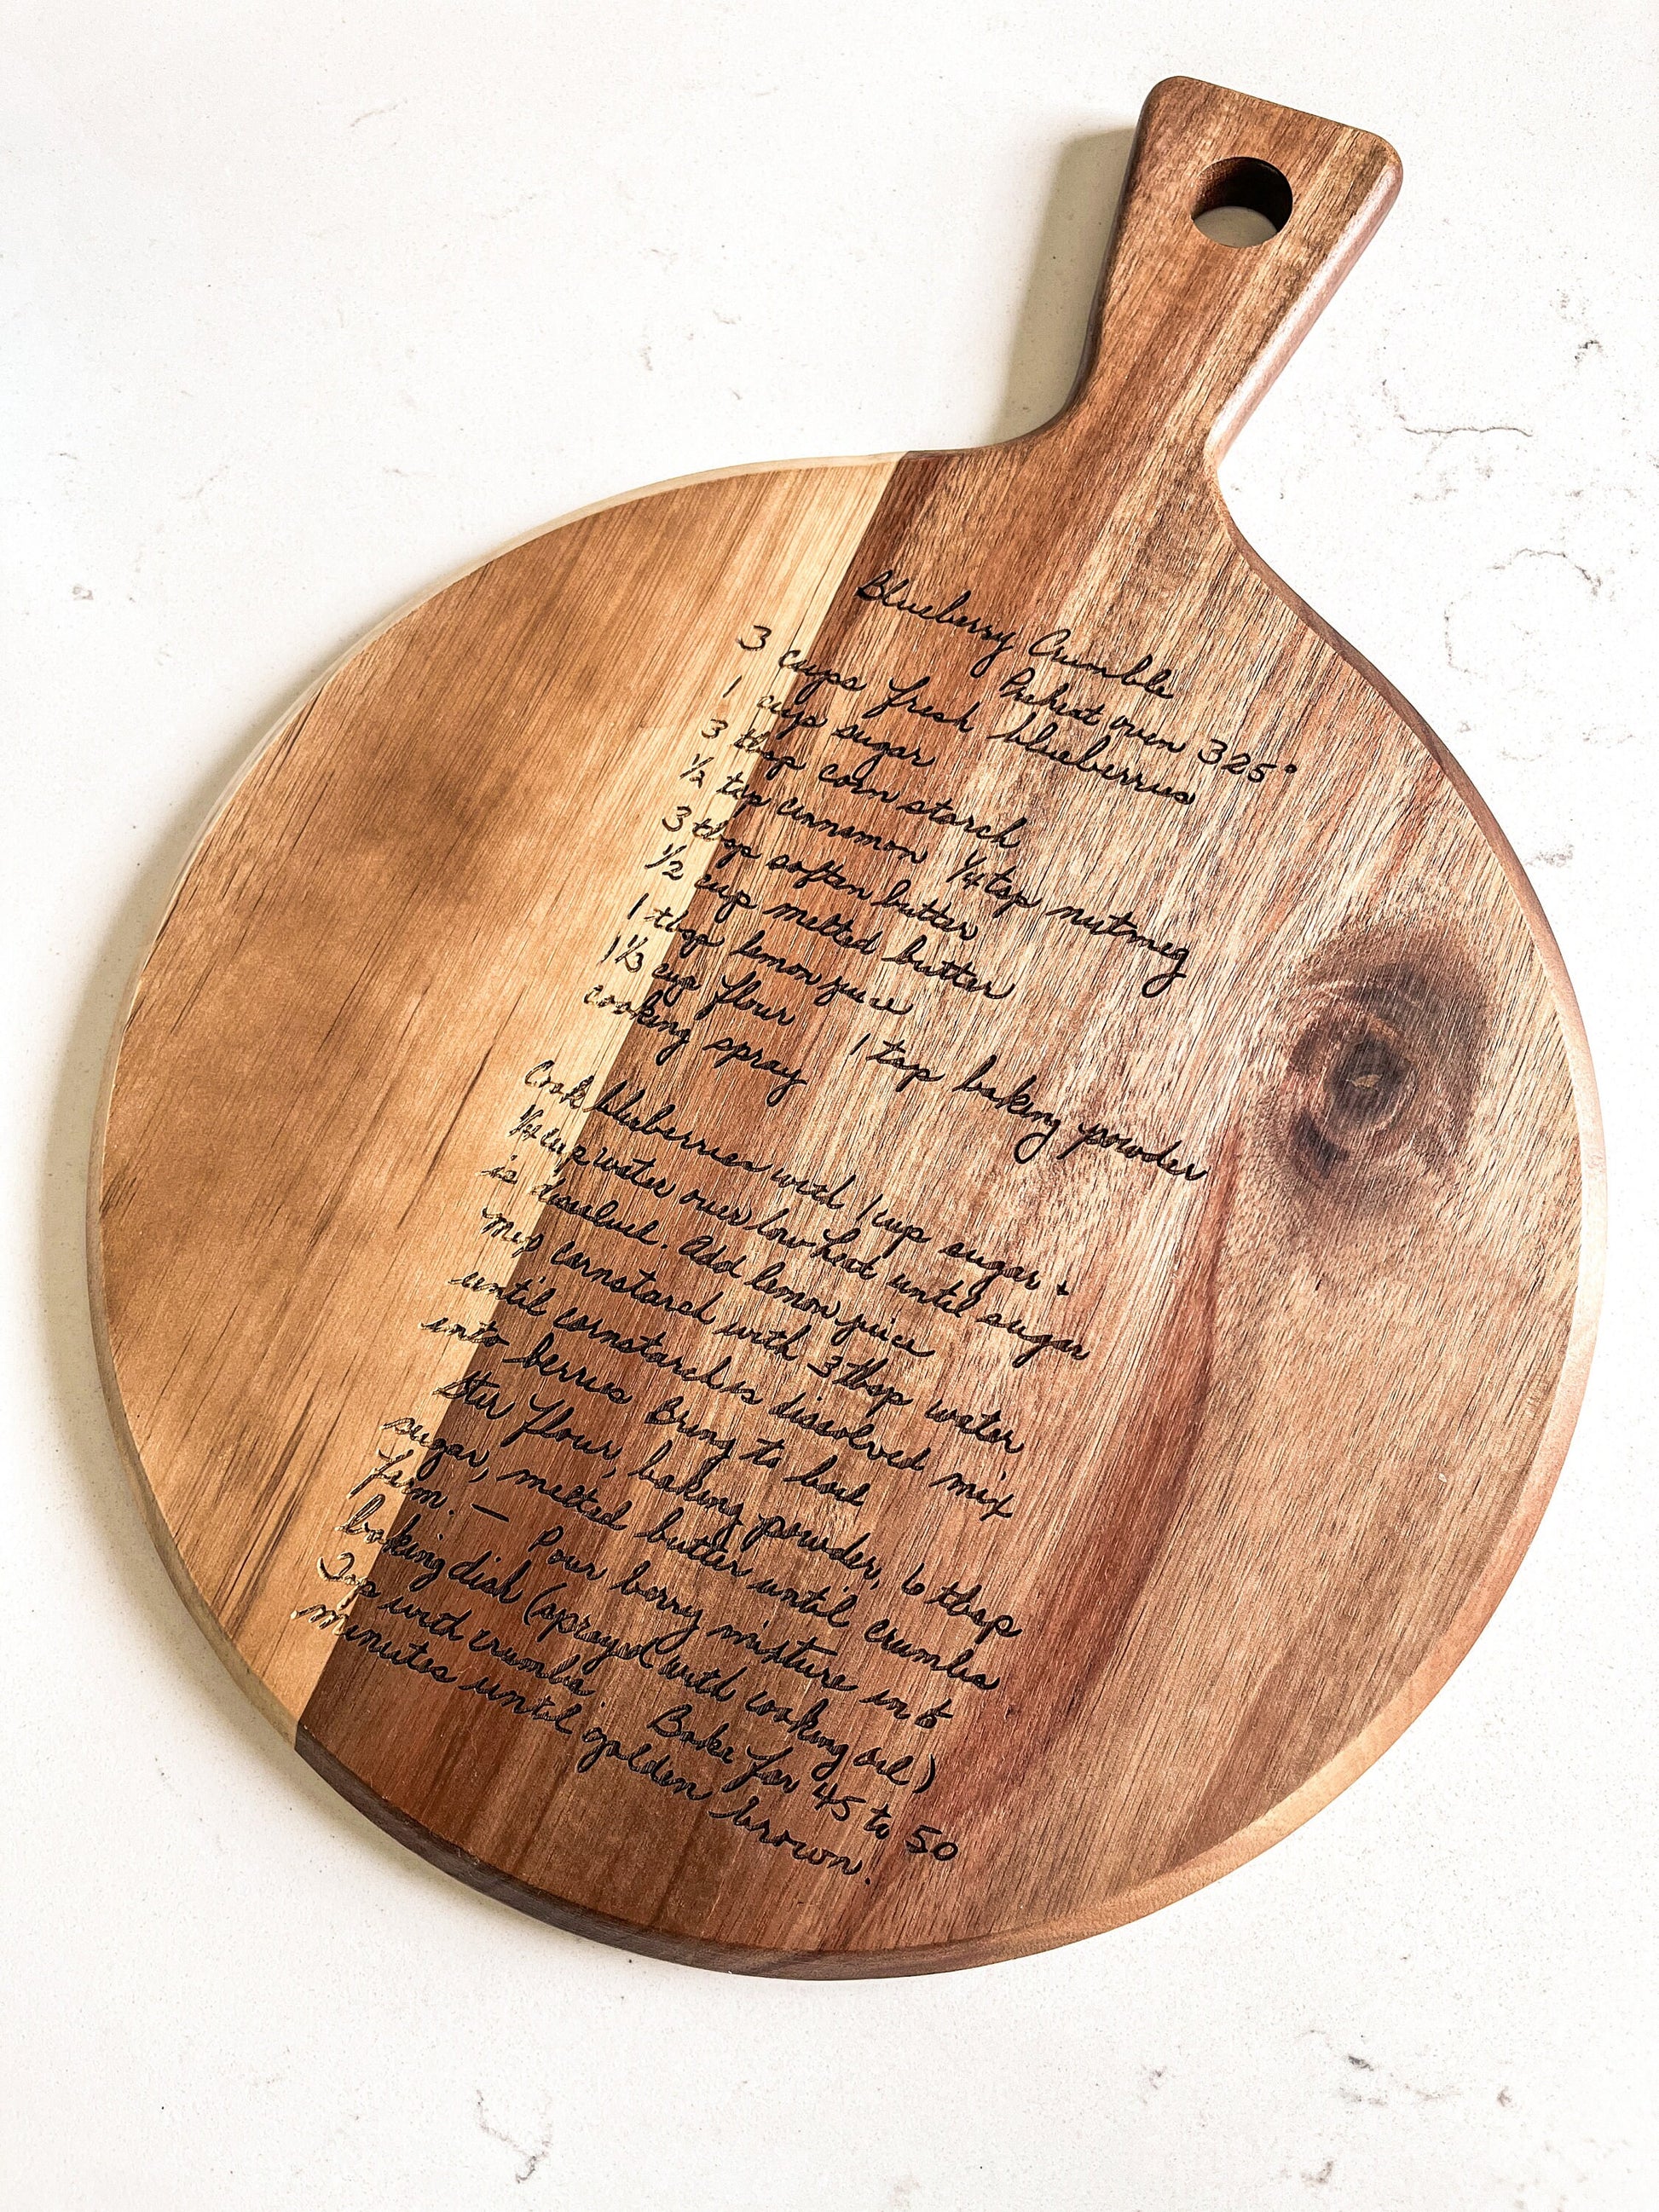 Blueberry Crumble
Preheat oven 325°
3 cups fresh blueberries
1 cup sugar
3 tbsp corn starch
1/2 tsp cinnamon 1/4 tsp nutmeg
3 tbsp soften butter
1/2 cup melted butter
1 tbsp lemon juice
1 1/3 cup flour 1 tsp baking powder
cooking spray
Cook blueberries with 1 cup sugar +
cup water over low heat until sugar
is dissolved. Add lemon juice
Mix cornstarch with 3 tbsp water
until cornstarch is dissolved mix
into berries Bring to boil
Stir flour, baking powder, 6 tbsp
sugar, melted butter until crumbs
form. — Pour berry mixture into
baking dish (sprayed with cooking oil)
Top with crumbs. Bake for 45 to 50
minutes until golden brown.